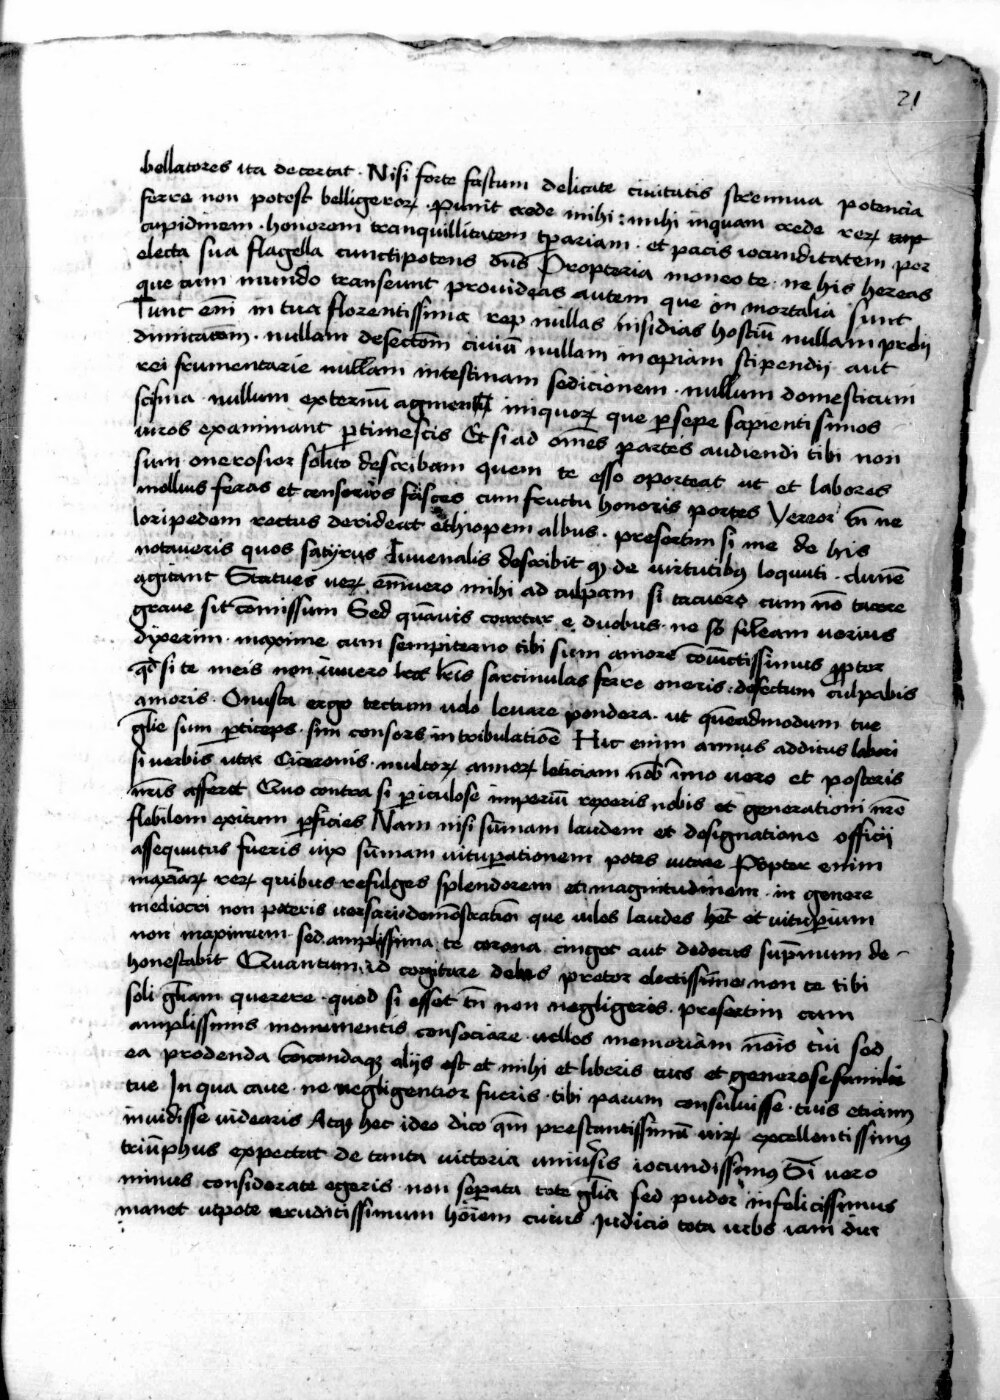 21
bellatores ita decertat · Nisi forte fastum delicate ciuitatis strennua potencia
ferre non potest belligeroꝝ · Punit crede mihi : mihi inquam crede reꝝ cup
cupidinem · honorem tranquillitatem tp̄ariam · et pacis iocunditatem per
electa sua flagella cunctipotens dn̄s Propteria moneo te · ne his hereas
que cum mundo transeunt prouideas autem que in mortalia sunt
Tunc em̄ in tua florentissima rep nullas insidias hostiū nullam prelij
dimicatōem · nullam defectōem ciuiū nullam inopiam stipendij aut
rei frumentarie nullam intestinam sedicionem · nullum domesticum
scisma · nullum externū agmen iniquoꝝ que ꝑsepe sapientissimos
uiros examinant ꝑtimescis Et si ad om̄es partes audiendi tibi non
sum onerosior solito describam quem te esse oporteat ut et labores
mollius feras et censorios fasces cum fructu honoris portes Vereor tn̄ ne
loripedem rectus derideat ethiopem albus · presertim si me de his
notaueris quos satyrus Iuuenalis describit qꝫ de uirtutibꝫ loquuti · clunē
agitant Statues ueꝝ em̄uero mihi ad culpam si tacuero cum nō tacere
graue sit cōmissum Sed quāuis coartar e duobus · ne sō fileam uerius
dyxerim · maxime cum sempiterno tibi sim amore cōiūctissimus ꝓpter
qd̄ si te meis non iuuero hīs sarcinulas ferre oneris : defectum culpabis
amoris · Onusta ergo tectum uelo leuare pondera · ut quēadmodum tue
glīe sum ꝑticeps · sim consors in tribulatiōe Hic enim annus additus labori
si uerbis utar Ciceronis · multoꝝ annoꝝ leticiam nob̄ īmo uero et posteris
nr̄is afferet Quo contra si ꝑiculose imperiū rexeris nobis et generationi nr̄e
flebilem exitum ꝑficies Nam nisi sūmam laudem et designatione officij
assequutus fueris uix sūmam uituꝑationem potes uitare Propter enim
maxīaꝝ reꝝ quibus refulges splendorem et magnitudinem · in genere
mediocri non poteris uersari demōstrationī que uiles laudes het̄ et uituꝑium
non maximum · sed amplissima te corona cinget aut dedecus supremum de-
honestabit Quantum id cogitare debes pretor electissime non te tibi
soli glīam querere · quod si esset tn̄ non negligeris · presertim cum
amplissimis monumentis consociare uelles memoriam nōis tui sed
ea prodenda cōicandaqꝫ alijs est et mihi et liberis tuis et generose familie
tue In qua caue · ne negligentior fueris · tibi parum consuluisse · tuis etiam
inuidisse uidearis Atqꝫ hec ideo dico qm̄ prestantissimū uiꝝ excellentissimꝰ
triūphus expectat de tanta uictoria uniuersis iocundissimꝰ Si uero
minus considerate egeris · non separata tote glīa sed pudor infelicissimus
manet utpote eruditissimum hōīem cuius iudicio tota urbs iam diu